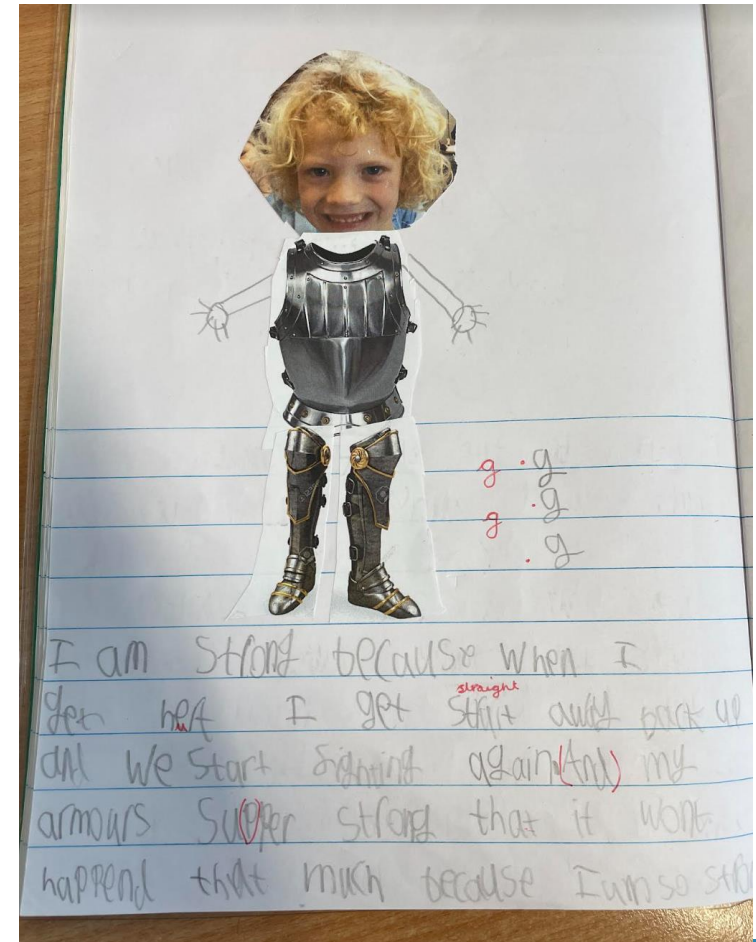 g . g
. g
g
. g
I am strong because when I
straight
get hurt I get strait away back up
and we start fighting again (And) my
armours Su(p)per strong that it wont
happend that much because I am so stro